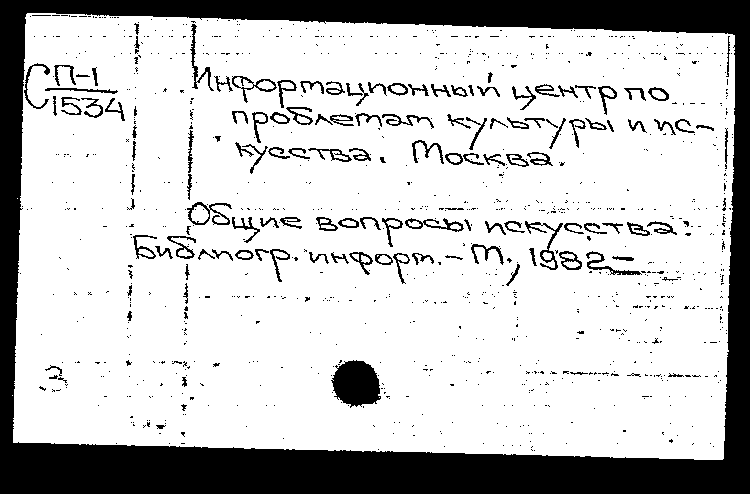 С П-1
1534
Информационный центр по
проблемам культуры и ис-
кусства. Москва.
Общие вопросы искусства:
Библиогр. информ. - М., 1982 -
3